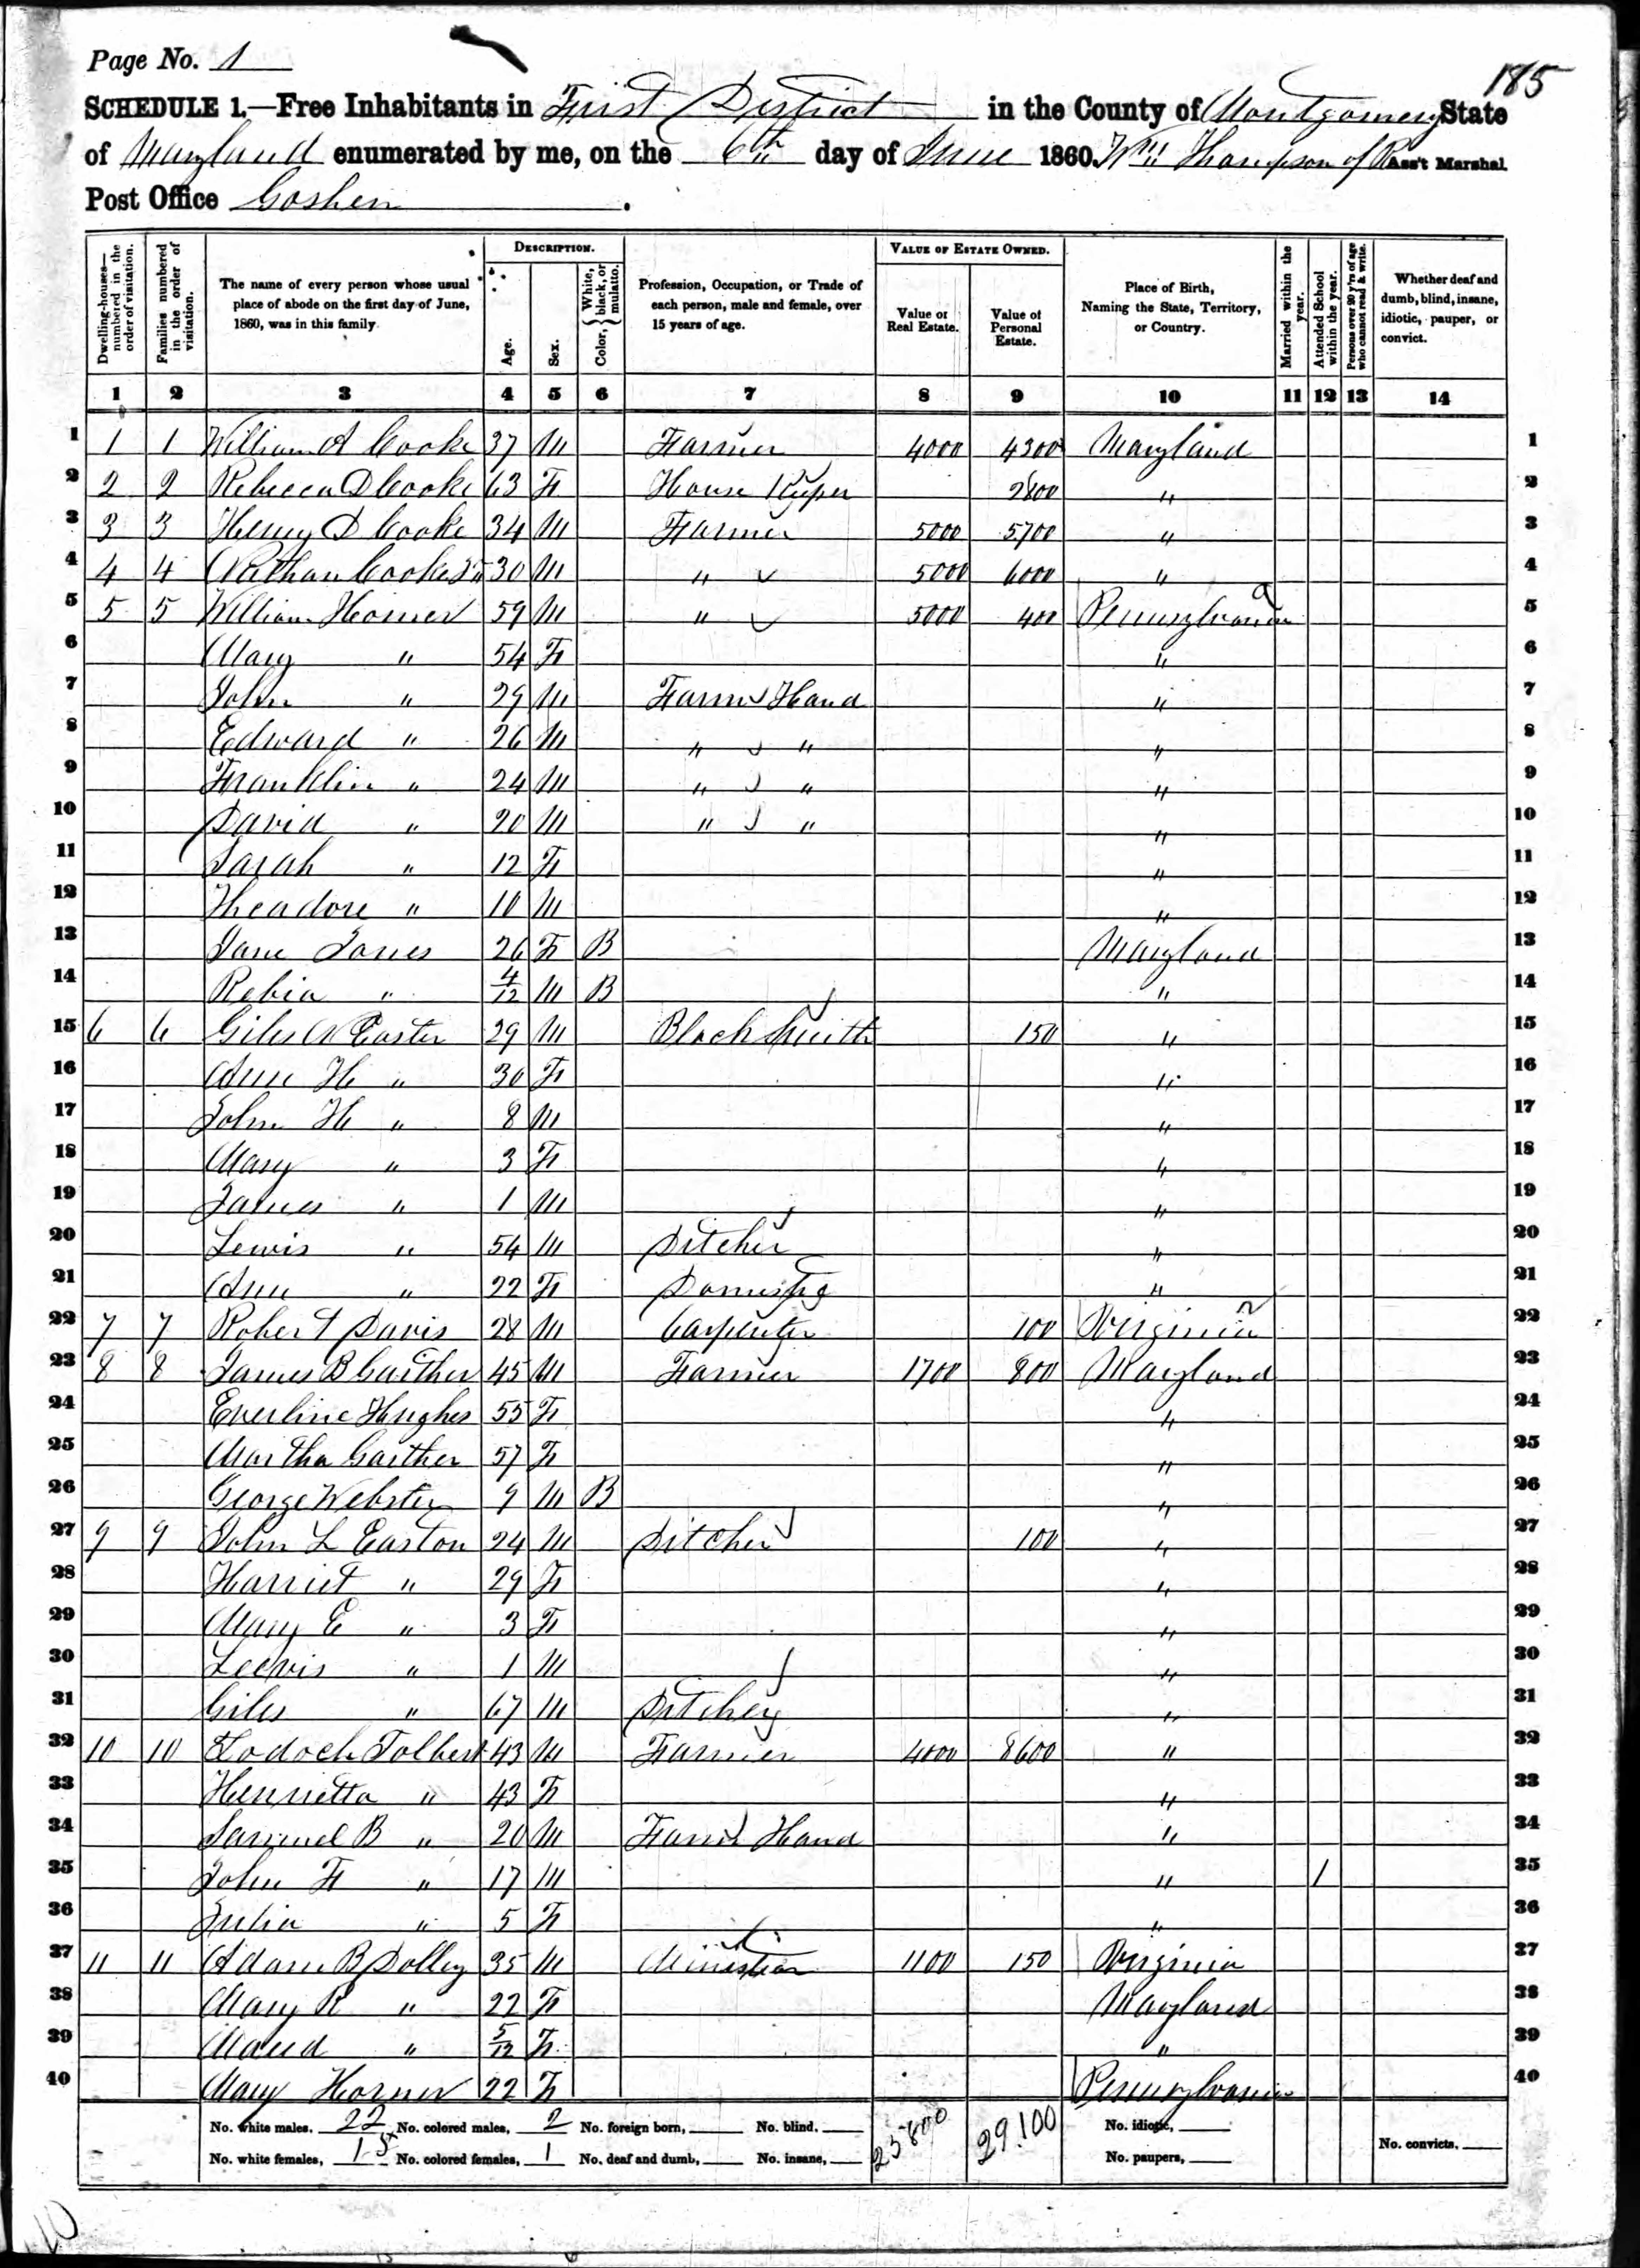 Page No. 1
185
SCHEDULE 1.—Free Inhabitants in First District in the County of Montgomery State
of Maryland enumerated by me, on the 6th day of June 1860. Wm Thompson of R Ass't Marshal.
Post Office Goshen.
Dwelling-houses—numbered in the order of visitation.
Families numbered in the order of visitation.
The name of every person whose usual place of abode on the first day of June, 1860, was in this family.
DESCRIPTION.
Age.
Sex.
Color, { White, black, or mulatto.
Profession, Occupation, or Trade of each person, male and female, over 15 years of age.
VALUE OF ESTATE OWNED.
Value of Real Estate.
Value of Personal Estate.
Place of Birth, Naming the State, Territory, or Country.
Married within the year.
Attended School within the year.
Persons over 20 y'rs of age who cannot read & write.
Whether deaf and dumb, blind, insane, idiotic, pauper, or convict.
1 2 3 4 5 6 7 8 9 10 11 12 13 14
1 1 1 William A Cooke 37 M Farmer 4000 4300 Maryland 1
2 2 2 Rebecca D Cooke 63 F House Keeper 2800 " 2
3 3 3 Henry D Cooke 34 M Farmer 5000 5700 " 3
4 4 4 Nathan Cooke Jr 30 M " 5000 6000 " 4
5 5 5 William Horner 59 M " 3000 400 Pennsylvania 5
6 Mary " 54 F " 6
7 John " 29 M Farm Hand " 7
8 Edward " 26 M " " " 8
9 Franklin " 24 M " " " 9
10 David " 20 M " " " 10
11 Sarah " 12 F " 11
12 Theadore " 10 M " 12
13 Jane Jones 26 F B Maryland 13
14 Rebia " 4/12 M B " 14
15 6 6 Giles Easter 29 M Black Smith 150 " 15
16 Ann H " 30 F " 16
17 John H " 8 M " 17
18 Mary " 3 F " 18
19 James " 1 M " 19
20 Lewis " 54 M Ditcher " 20
21 Ann " 22 F " 21
22 7 7 Robert Davis 28 M Carpenter 100 Virginia 22
23 8 8 James B Gaither 45 M Farmer 1700 800 Maryland 23
24 Everline Hughes 55 F " 24
25 Martha Gaither 57 F " 25
26 George Webster 9 M B " 26
27 9 9 John L Easton 24 M Ditcher 100 " 27
28 Harriet " 29 F " 28
29 Mary E " 3 F " 29
30 Leewis " 1 M " 30
31 Giles " 67 M Ditcher " 31
32 10 10 Zodoch Tolbert 43 M Farmer 4000 8600 " 32
33 Henrietta " 43 F " 33
34 Samuel B " 20 M Farm Hand " 34
35 John F " 17 M " 1 35
36 Julia " 5 F " 36
37 11 11 Adam B Dolley 35 M 1100 150 Virginia 37
38 Mary R " 22 F Maryland 38
39 Maud " 5/12 F " 39
40 Mary Horner 22 F Pennsylvania 40
No. white males, 22 No. colored males, 2 No. foreign born, No. blind, 23800 29.100 No. idiotic,
No. white females, 15 No. colored females, 1 No. deaf and dumb, No. insane, No. paupers, No. convicts,